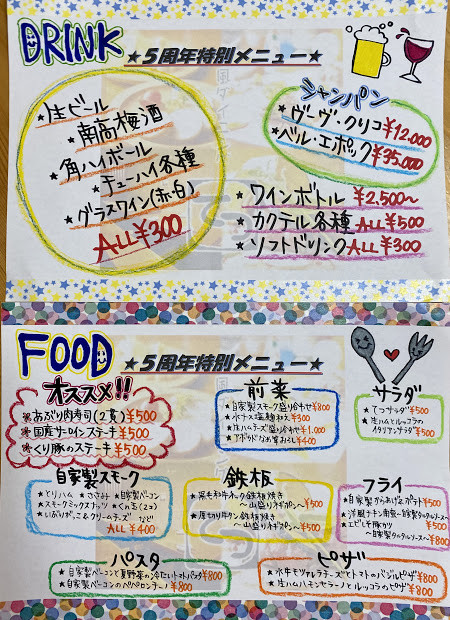 DRINK
★5周年特別メニュー★
★生ビール
★南高梅酒
★角ハイボール
★チューハイ各種
★グラスワイン(赤・白)
ALL ¥300
シャンパン
★ヴーヴ・クリコ ¥12,000
★ベル・エポック ¥35,000
★ワインボトル ¥2,500~
★カクテル各種 ALL ¥500
★ソフトドリンク ALL ¥300
FOOD
★5周年特別メニュー★
オススメ!!
あぶり肉寿司(2貫) ¥500
国産サーロインステーキ ¥500
くり豚のステーキ ¥500
前菜
★自家製スモーク盛り合わせ ¥800
★水ナス塩麹和え ¥300
★生ハムチーズ盛り合わせ ¥1,000
★アボカドなめ茸おろし ¥400
サラダ
★てっサラダ ¥500
★生ハムとルッコラの
イタリアンサラダ ¥500
自家製スモーク
★とりハム ★ささみ ★自家製ベーコン
★スモークミックスナッツ ★くん玉(2コ)
★いぶりがっこクリームチーズ など
ALL ¥400
鉄板
★黒毛和牛ホホ肉鉄板焼き
~山盛りネギポン~ ¥500
★厚切り牛タン鉄板焼き
~山盛りネギポン~ ¥500
フライ
★自家製からあげ&ポテト ¥500
★洋風チキン南蛮~自家製タルタルソース ¥800
★エビヒレ豚カツ
~自家製タルタルソース~ ¥800
パスタ
★自家製ベーコンと夏野菜の冷たいトマトパスタ ¥800
★自家製ベーコンのペペロンチーノ ¥800
ピザ
★水牛モッツァレラチーズとトマトのバジルピザ ¥800
★生ハムハモンセラーノとルッコラのピザ ¥800